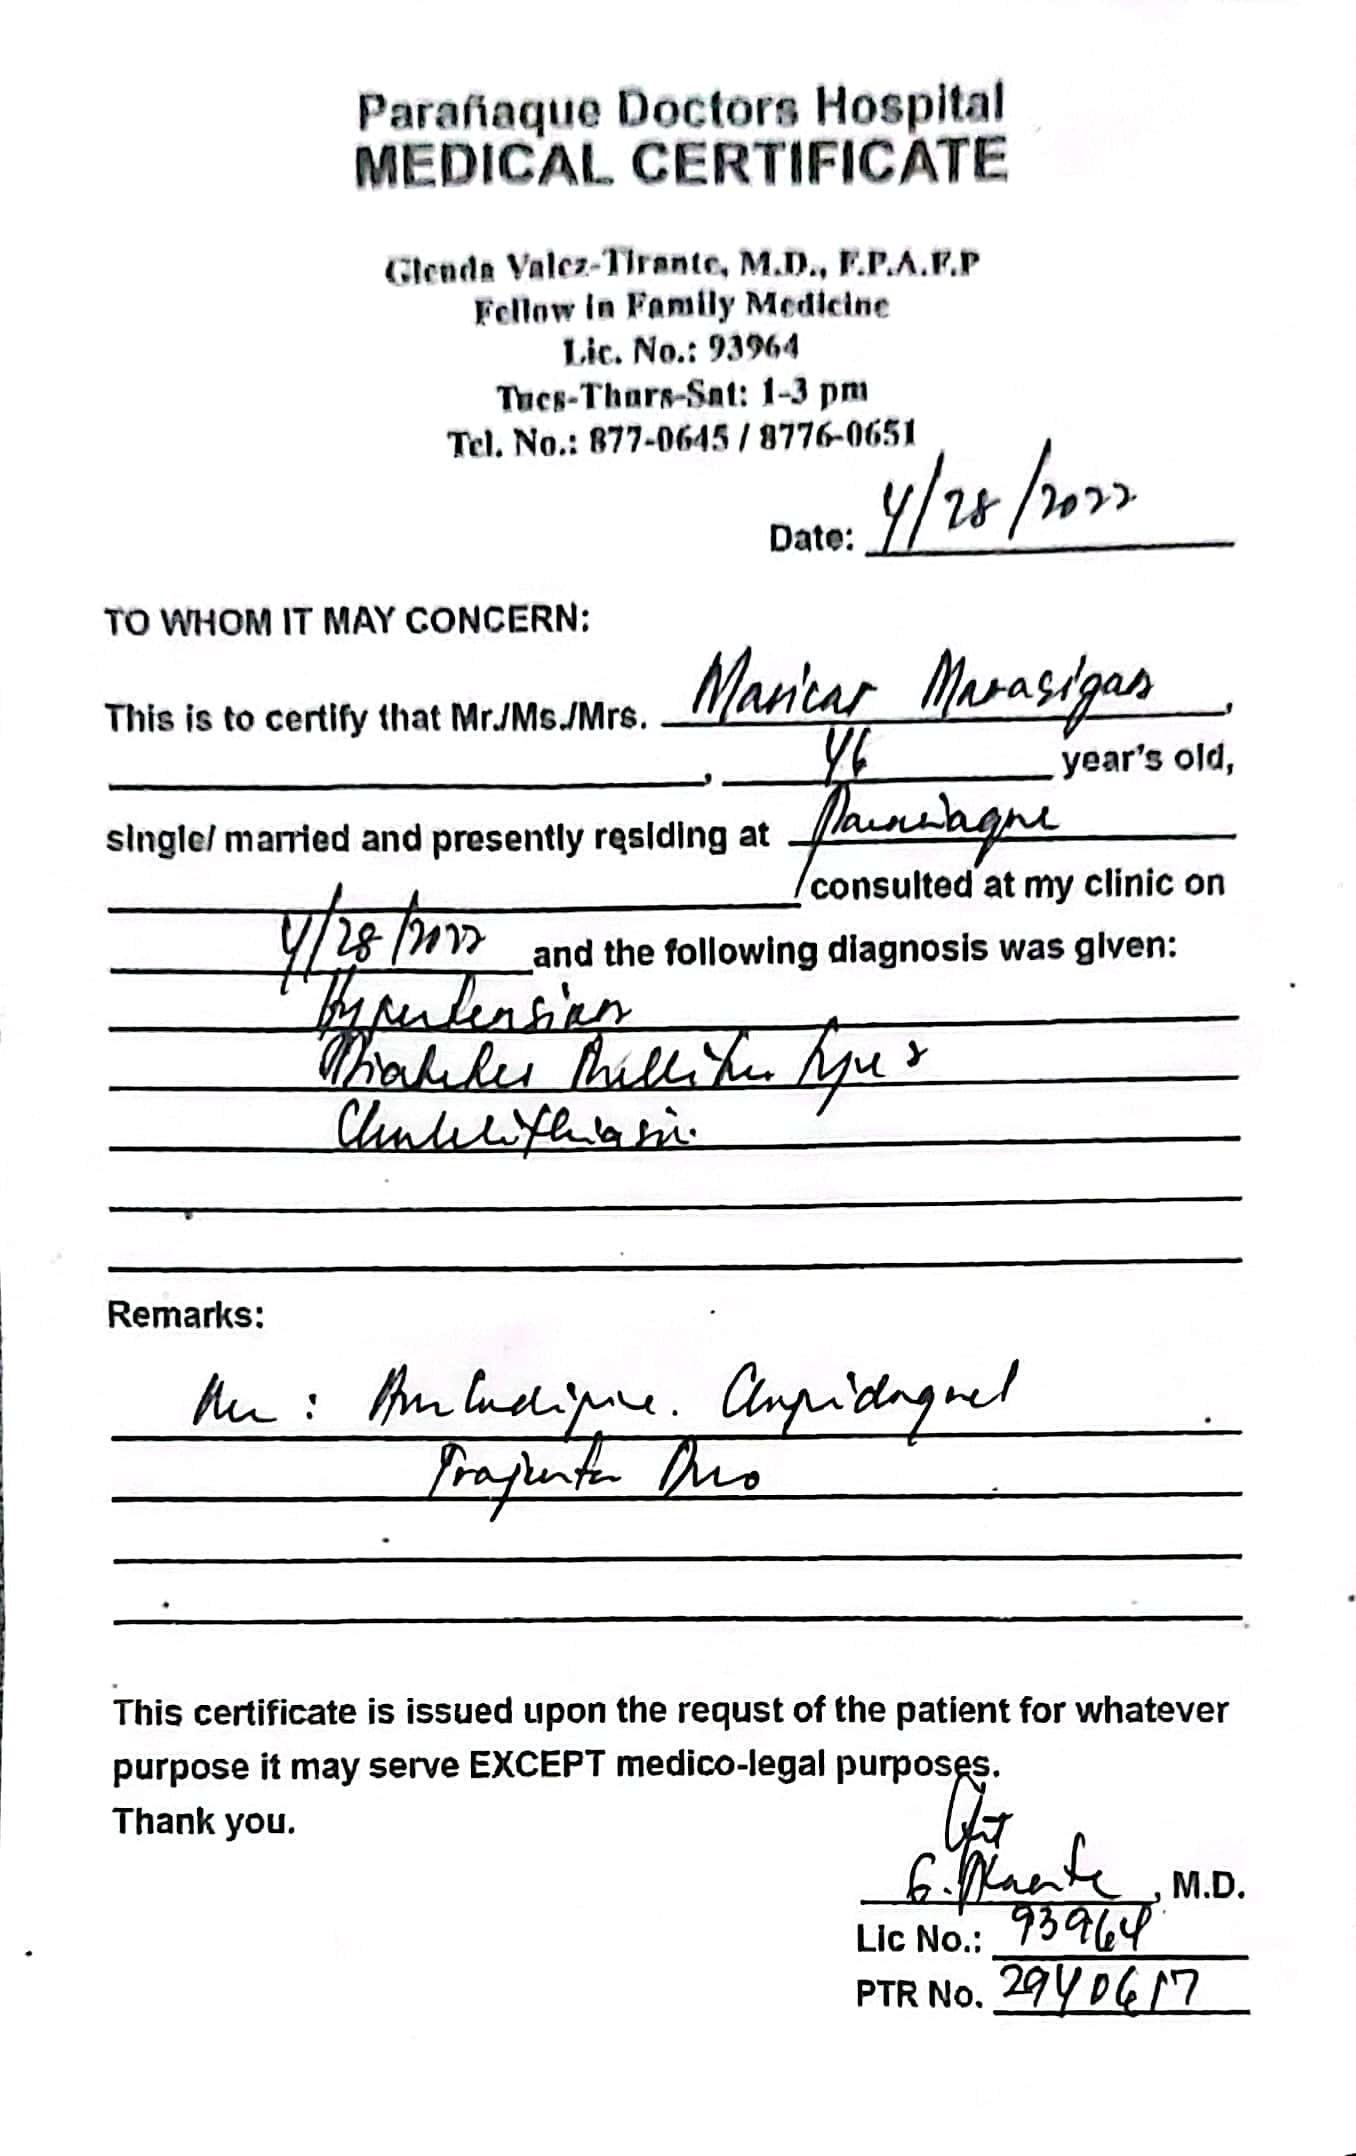 Parañaque Doctors Hospital
MEDICAL CERTIFICATE
Glenda Valez-Tirante, M.D., F.P.A.F.P
Fellow in Family Medicine
Lic. No.: 93964
Tues-Thurs-Sat: 1-3 pm
Tel. No.: 877-0645 / 8776-0651
Date: 4/28/2022
TO WHOM IT MAY CONCERN:
This is to certify that Mr./Ms./Mrs. Maricar Marasigan,
, 46 year's old,
single/ married and presently residing at Paranaque
consulted at my clinic on
4/28/2022 and the following diagnosis was given:
Hypertension
Diabetes Mellitus type 2
Remarks:
: Amlodipine. Clopidogrel
Trajenta Duo
This certificate is issued upon the requst of the patient for whatever
purpose it may serve EXCEPT medico-legal purposes.
Thank you.
G. Tirante, M.D.
Lic No.: 93964
PTR No. 2940617